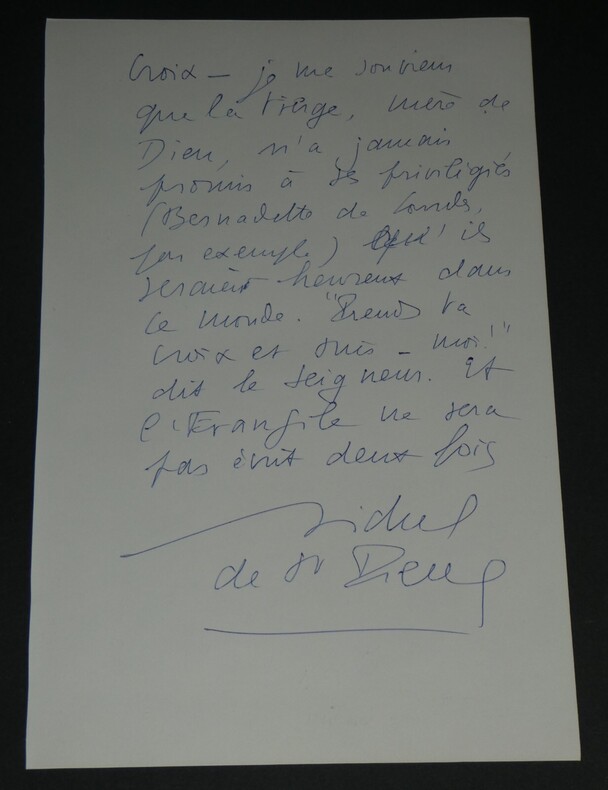 Croix – je me souviens
que la Vierge, mère de
Dieu, n'a jamais
promis à ses privilégiés
(Bernadette de Lourdes,
par exemple) qu'ils
seraient heureux dans
ce monde. "Prends ta
croix et suis-moi!"
dit le Seigneur. Et
l'Evangile ne sera
pas écrit deux fois
Michel
de St Pierre